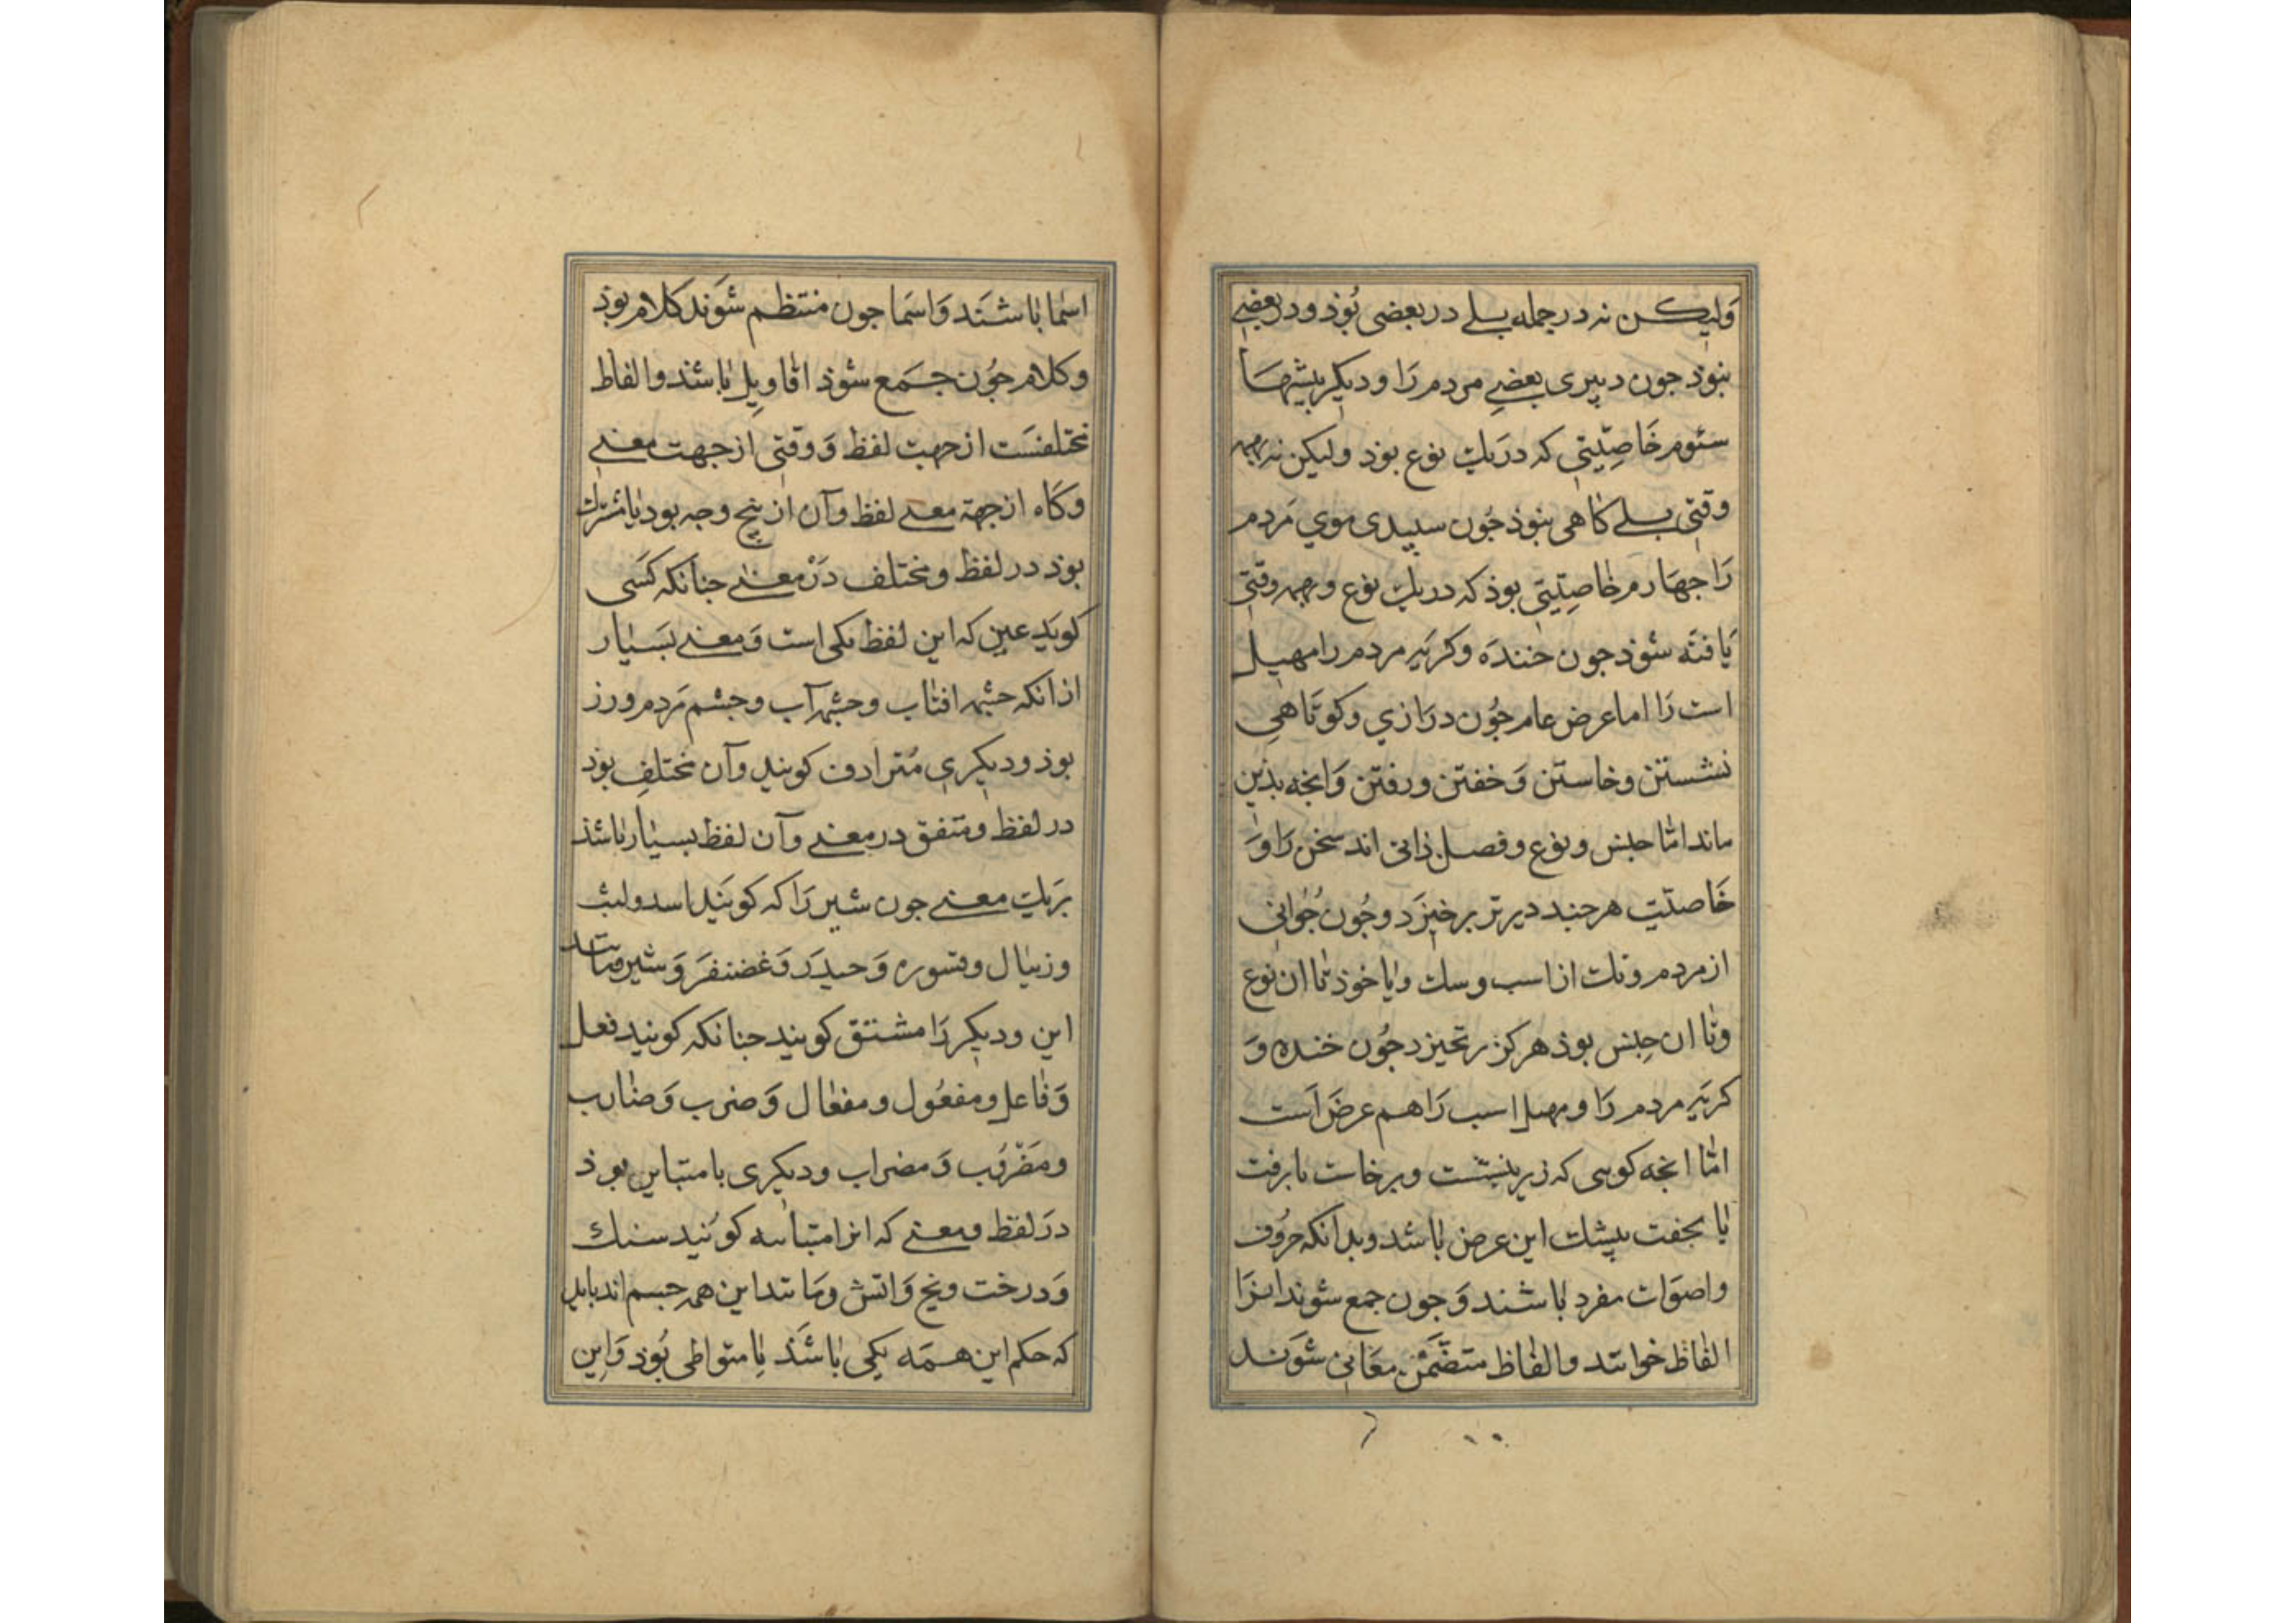 وَلیکن نه در جمله بلے در بعضی بُوذ و در بعضے
نبوذ جون دبیری بعضے مردم رَا و دیکر پیشهَا
سئوم خَاصِیّتی که در یك نوع بوذ ولیکن نه بهمه
وقتی بلے کاهی نبوذ جُون سپیدی موي مَردم
رَا جهَارم خاصِیّتی بوذ که در یك نوع و بهمه وقتی
یَافته شوذ جون خندَه و کریَه مردم را و صهیل
اسب رَا اما عرض عام جُون درَازي و کوتَاهی
نشستن و خاستن وَ خفتن و رفتن وَ انجه بذین
ماند امّا جنس و نوع و فصل ذاتی اند سخن رَا وَ
خَاصیّت هرجند دیرتر برخیزَد و جُون جُوانی
از مردم و تك از اسب و سك و یا خوذ تا ان نوع
و تا ان جِنس بوذ هرکز برنخیزد جُون خنده وَ
کریَه مردم رَا و صهیل اسب رَا هم عرضَ است
امّا انجه کویی که زید بنشست و برخاست یا برفت
یا بخفت بیشك این عرض باشد و بدانکه حرُوف
و اصوَات مفرد باشند وَ جون جمع شوند انرَا
الفاظ خوانند و الفاظ متضَمّن معَانی شوَند
اسْما باشنَد وَ اسمَا جون منتظم شوَند کلام بوذ
و کلام جُون جَمع شوذ اقاوِیل باشند و الفاظ
مختلفسَت از جهت لفظ وَ وقتی از جهت معنے
و کَاه از جهة معنے لفظ و آن از پنج وجه بود یا مشترك
بوذ در لفظ و مختلف دَرْ معنے جنانکه کَسی
کویَد عین که این لفظ یکی است وَ معنے بسَیار
از انکه جشمه افتاب و جشمه آب و جشم مَردم و زر
بوذ و دیکرِی مُترادف کویند و آن مختلفِ بوذ
در لفظ و متفق در معنے و آن لفظ بسیار باشذ
بریَك معنے جون شیر رَا که کویَند اسد و لیث
و زیبال و قسوره وَ حیدَر وَ غضنفرَ وَ شیر مانند
این و دیکر رَا مشتق کویند جنانکه کویند فعل
وَ فاعل و مفعُول و مفعال وَ ضرب وَ ضارب
و مَضْرُب وَ مضراب و دیکری با متباین بوذ
درَ لفظ و معنے که انرا متباینه کویَند سنك
وَ درخت و یخ وَ اتش و مَانند این همه جسم اند باید
که حکم این همَه یکی باشَذ یا متواطی بُوذ وَ این